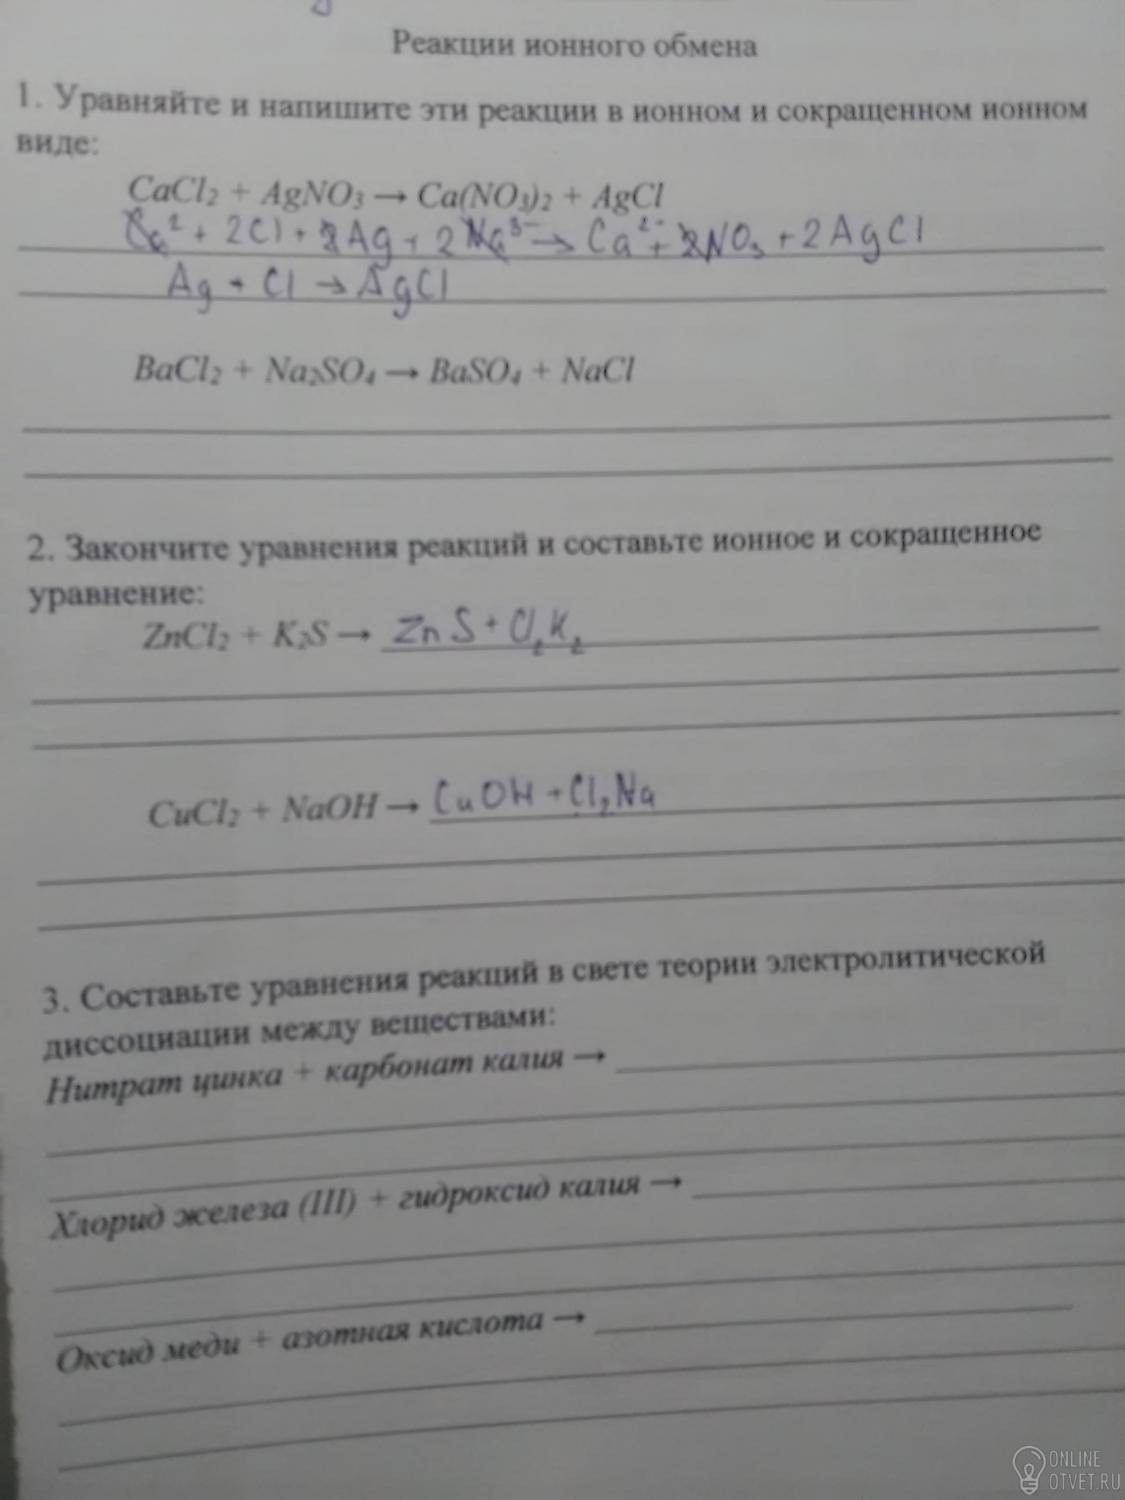 Реакции ионного обмена
1. Уравняйте и напишите эти реакции в ионном и сокращенном ионном
виде:
CaCl₂ + AgNO₃ → Ca(NO₃)₂ + AgCl
Ca² + 2Cl + 2Ag + 2Na³⁻ → Ca²⁻ + 2NO₃ + 2AgCl
Ag + Cl → AgCl
BaCl₂ + Na₂SO₄ → BaSO₄ + NaCl
2. Закончите уравнения реакций и составьте ионное и сокращенное
уравнение:
ZnCl₂ + K₂S → ZnS + Cl₂K₂
CuCl₂ + NaOH → CuOH + Cl₂Na
3. Составьте уравнения реакций в свете теории электролитической
диссоциации между веществами:
Нитрат цинка + карбонат калия →
Хлорид железа (III) + гидроксид калия →
Оксид меди + азотная кислота →
ONLINE
OTVET.RU